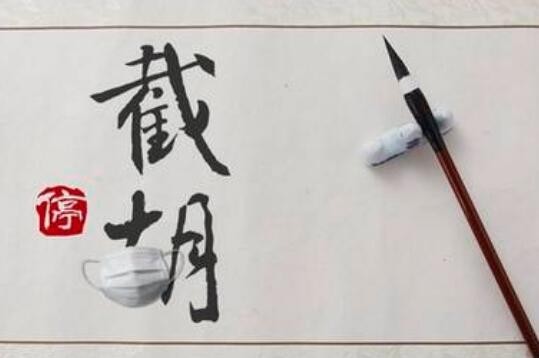 截
胡
停